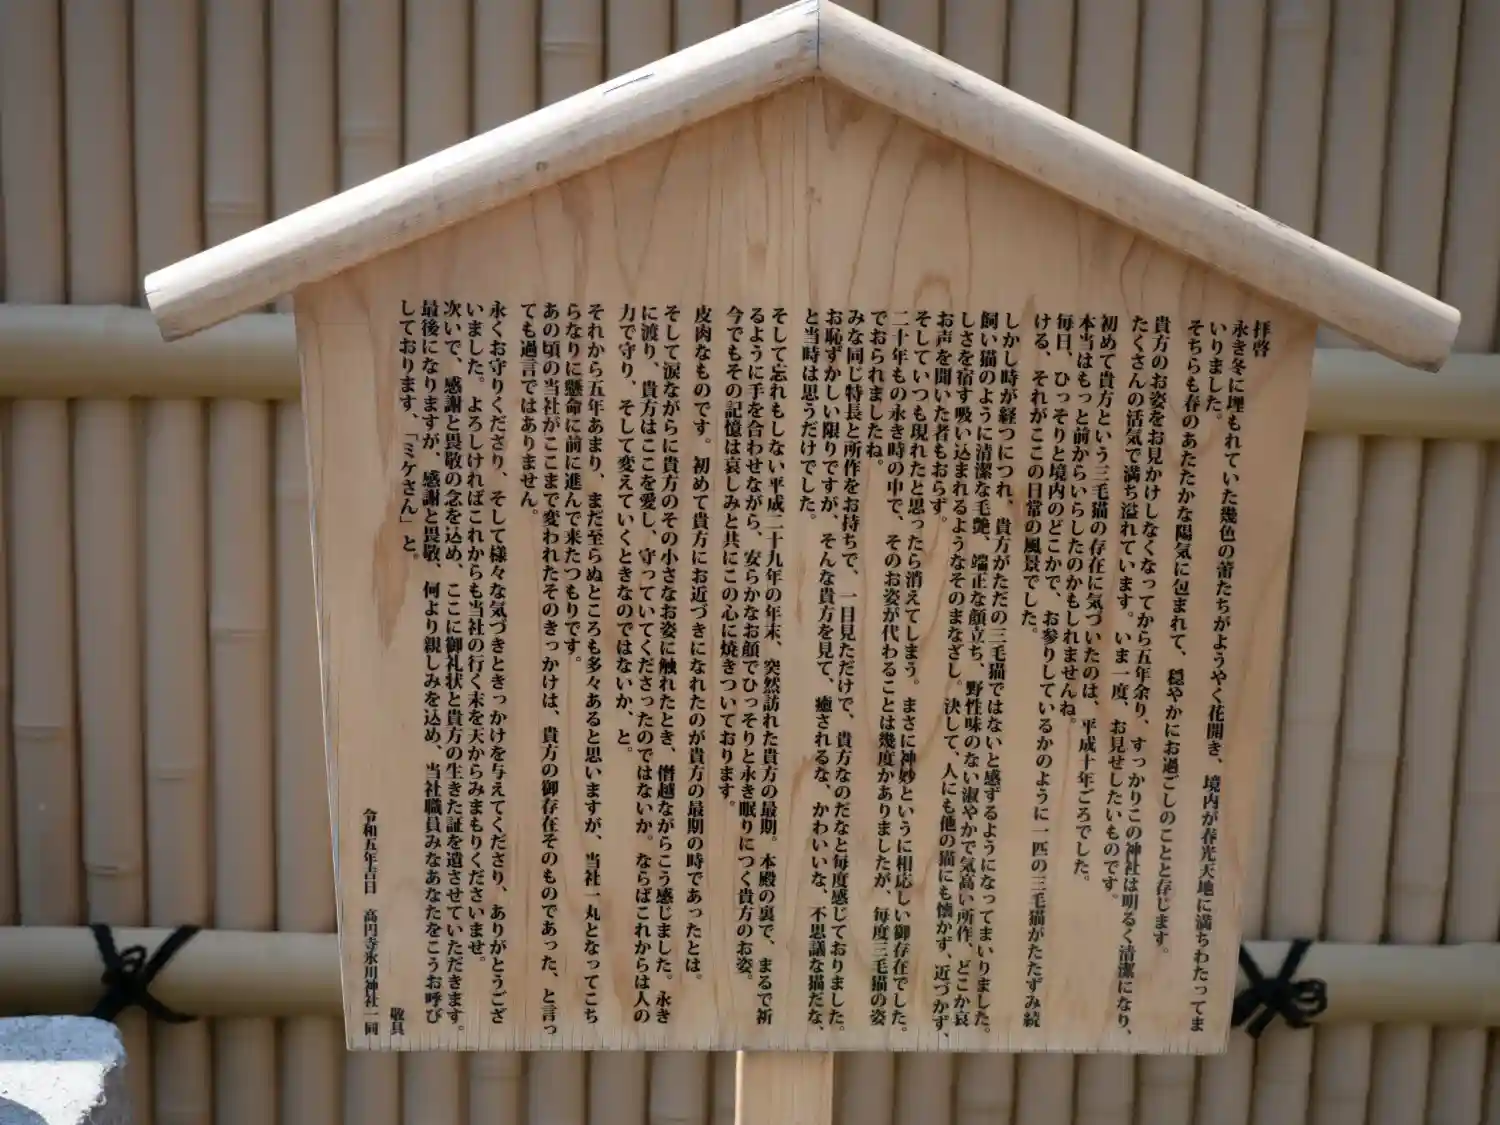 拝啓
永き冬に埋もれていた幾色の蕾たちがようやく花開き、境内が春光天地に満ちわたってま
いりました。
そちらも春のあたたかな陽気に包まれて、穏やかにお過ごしのことと存じます。
貴方のお姿をお見かけしなくなってから五年余り、すっかりこの神社は明るく清潔になり、
たくさんの活気で満ち溢れています。いま一度、お見せしたいものです。
初めて貴方という三毛猫の存在に気づいたのは、平成十年ごろでした。
本当はもっと前からいらしたのかもしれませんね。
毎日、ひっそりと境内のどこかで、お参りしているかのように一匹の三毛猫がたたずみ続
ける、それがここの日常の風景でした。
しかし時が経つにつれ、貴方がただの三毛猫ではないと感ずるようになってまいりました。
飼い猫のように清潔な毛艶、端正な顔立ち、野性味のない淑やかで気高い所作、どこか哀
しさを宿す吸い込まれるようなそのまなざし。決して、人にも他の猫にも懐かず、近づかず、
お声を聞いた者もおらず。
そしていつも現れたと思ったら消えてしまう。まさに神妙というに相応しい御存在でした。
二十年もの永き時の中で、そのお姿が代わることは幾度かありましたが、毎度三毛猫の姿
でおられましたね。
みな同じ特長と所作をお持ちで、一目見ただけで、貴方なのだなと毎度感じておりました。
お恥ずかしい限りですが、そんな貴方を見て、癒されるな、かわいいな、不思議な猫だな、
と当時は思うだけでした。
そして忘れもしない平成二十九年の年末、突然訪れた貴方の最期。本殿の裏で、まるで祈
るように手を合わせながら、安らかなお顔でひっそりと永き眠りにつく貴方のお姿。
今でもその記憶は哀しみと共にこの心に焼きついております。
皮肉なものです。初めて貴方にお近づきになれたのが貴方の最期の時であったとは。
そして涙ながらに貴方のその小さなお姿に触れたとき、僭越ながらこう感じました。永き
に渡り、貴方はここを愛し、守っていてくださったのではないか。ならばこれからは人の
力で守り、そして変えていくときなのではないか、と。
それから五年あまり、まだ至らぬところも多々あると思いますが、当社一丸となってこち
らなりに懸命に前に進んで来たつもりです。
あの頃の当社がここまで変われたそのきっかけは、貴方の御存在そのものであった、と言っ
ても過言ではありません。
永くお守りくださり、そして様々な気づきときっかけを与えてくださり、ありがとうござ
いました。よろしければこれからも当社の行く末を天からみまもりくださいませ。
次いで、感謝と畏敬の念を込め、ここに御礼状と貴方の生きた証を遺させていただきます。
最後になりますが、感謝と畏敬、何より親しみを込め、当社職員みなあなたをこうお呼び
しております、「ミケさん」と。
敬具
令和五年吉日　高円寺氷川神社一同